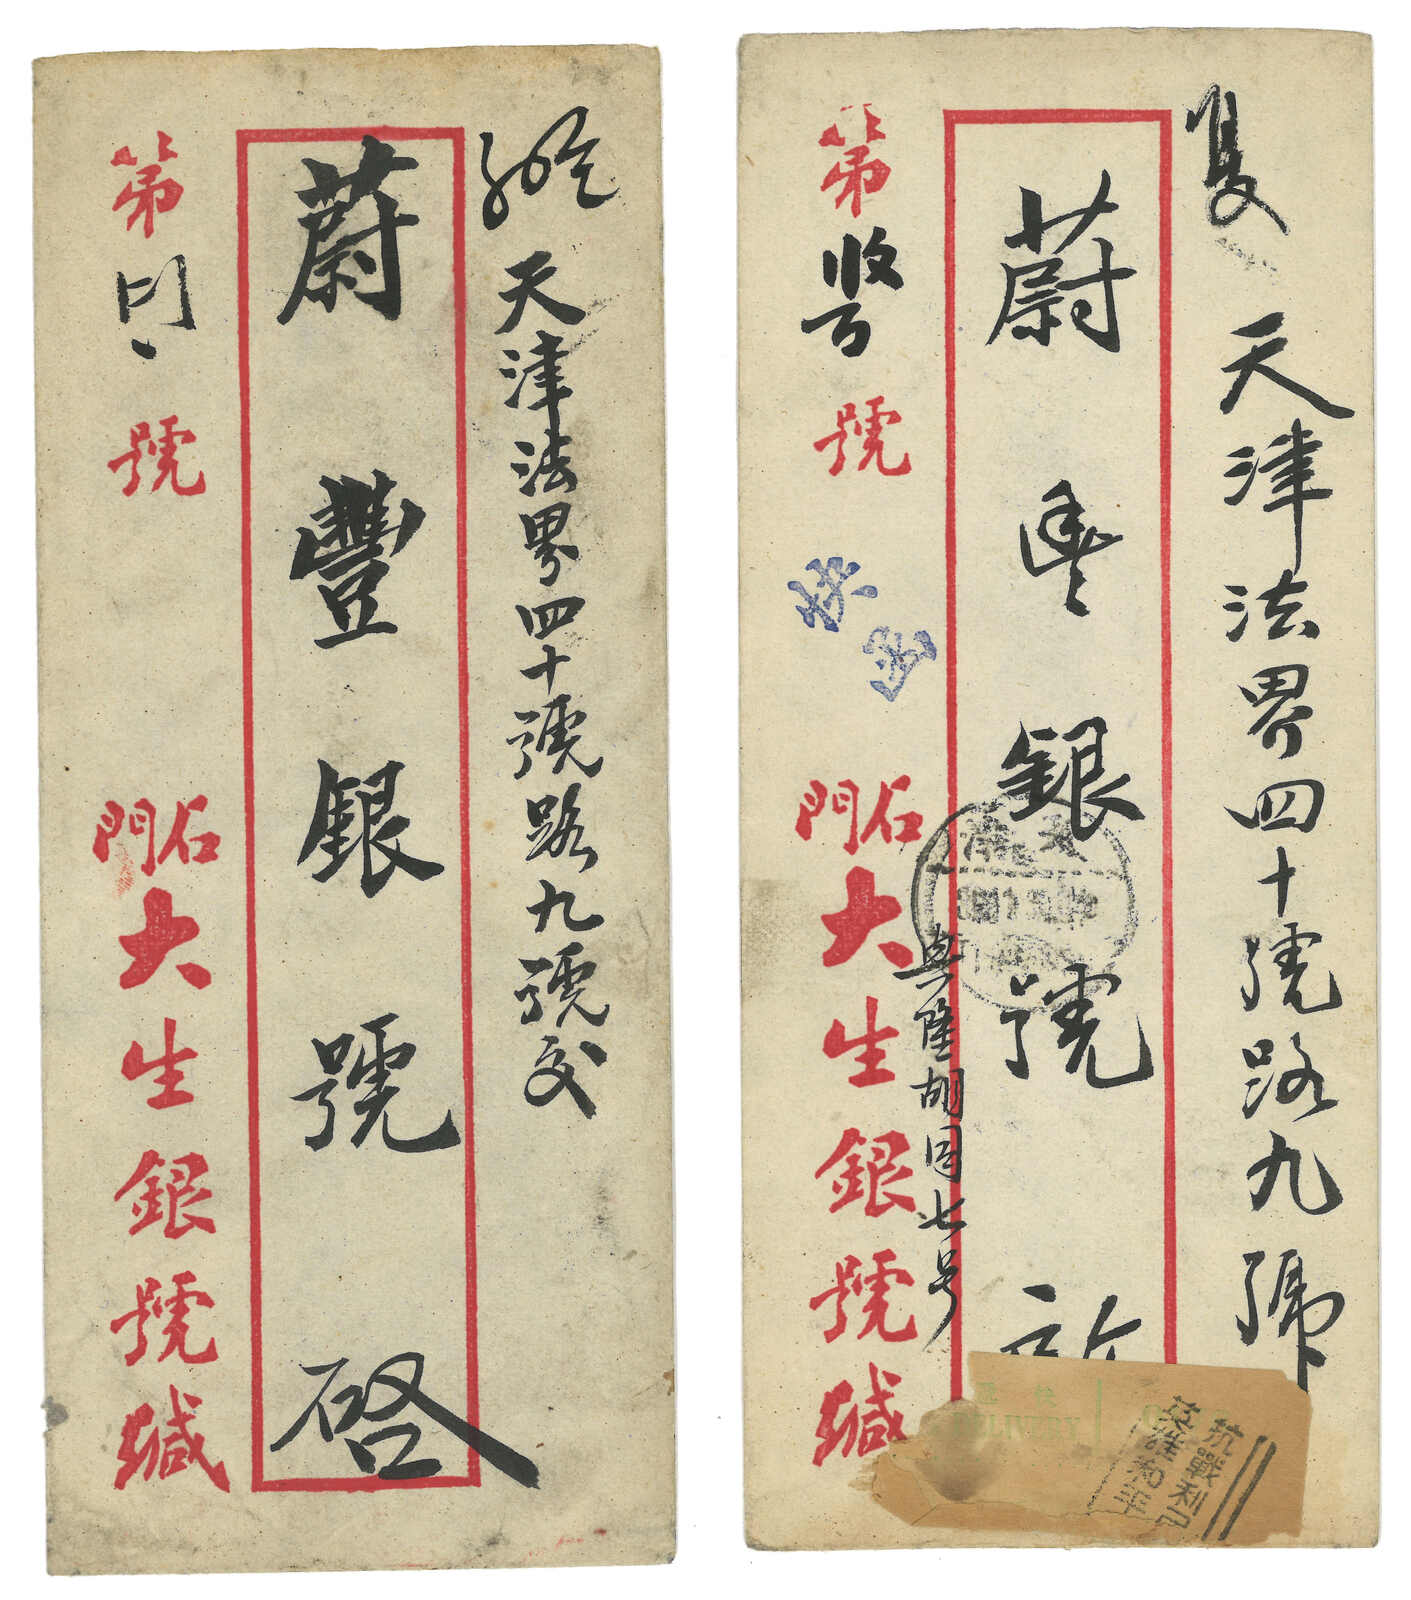 天津法界四十號路九號交
蔚豐銀號啓
第
號
石門
大生銀號緘
天津法界四十號路九號
蔚豐銀號
第
號
快
石門
大生銀號緘
興隆胡同七号
天津
DELIVERY
抗戰利